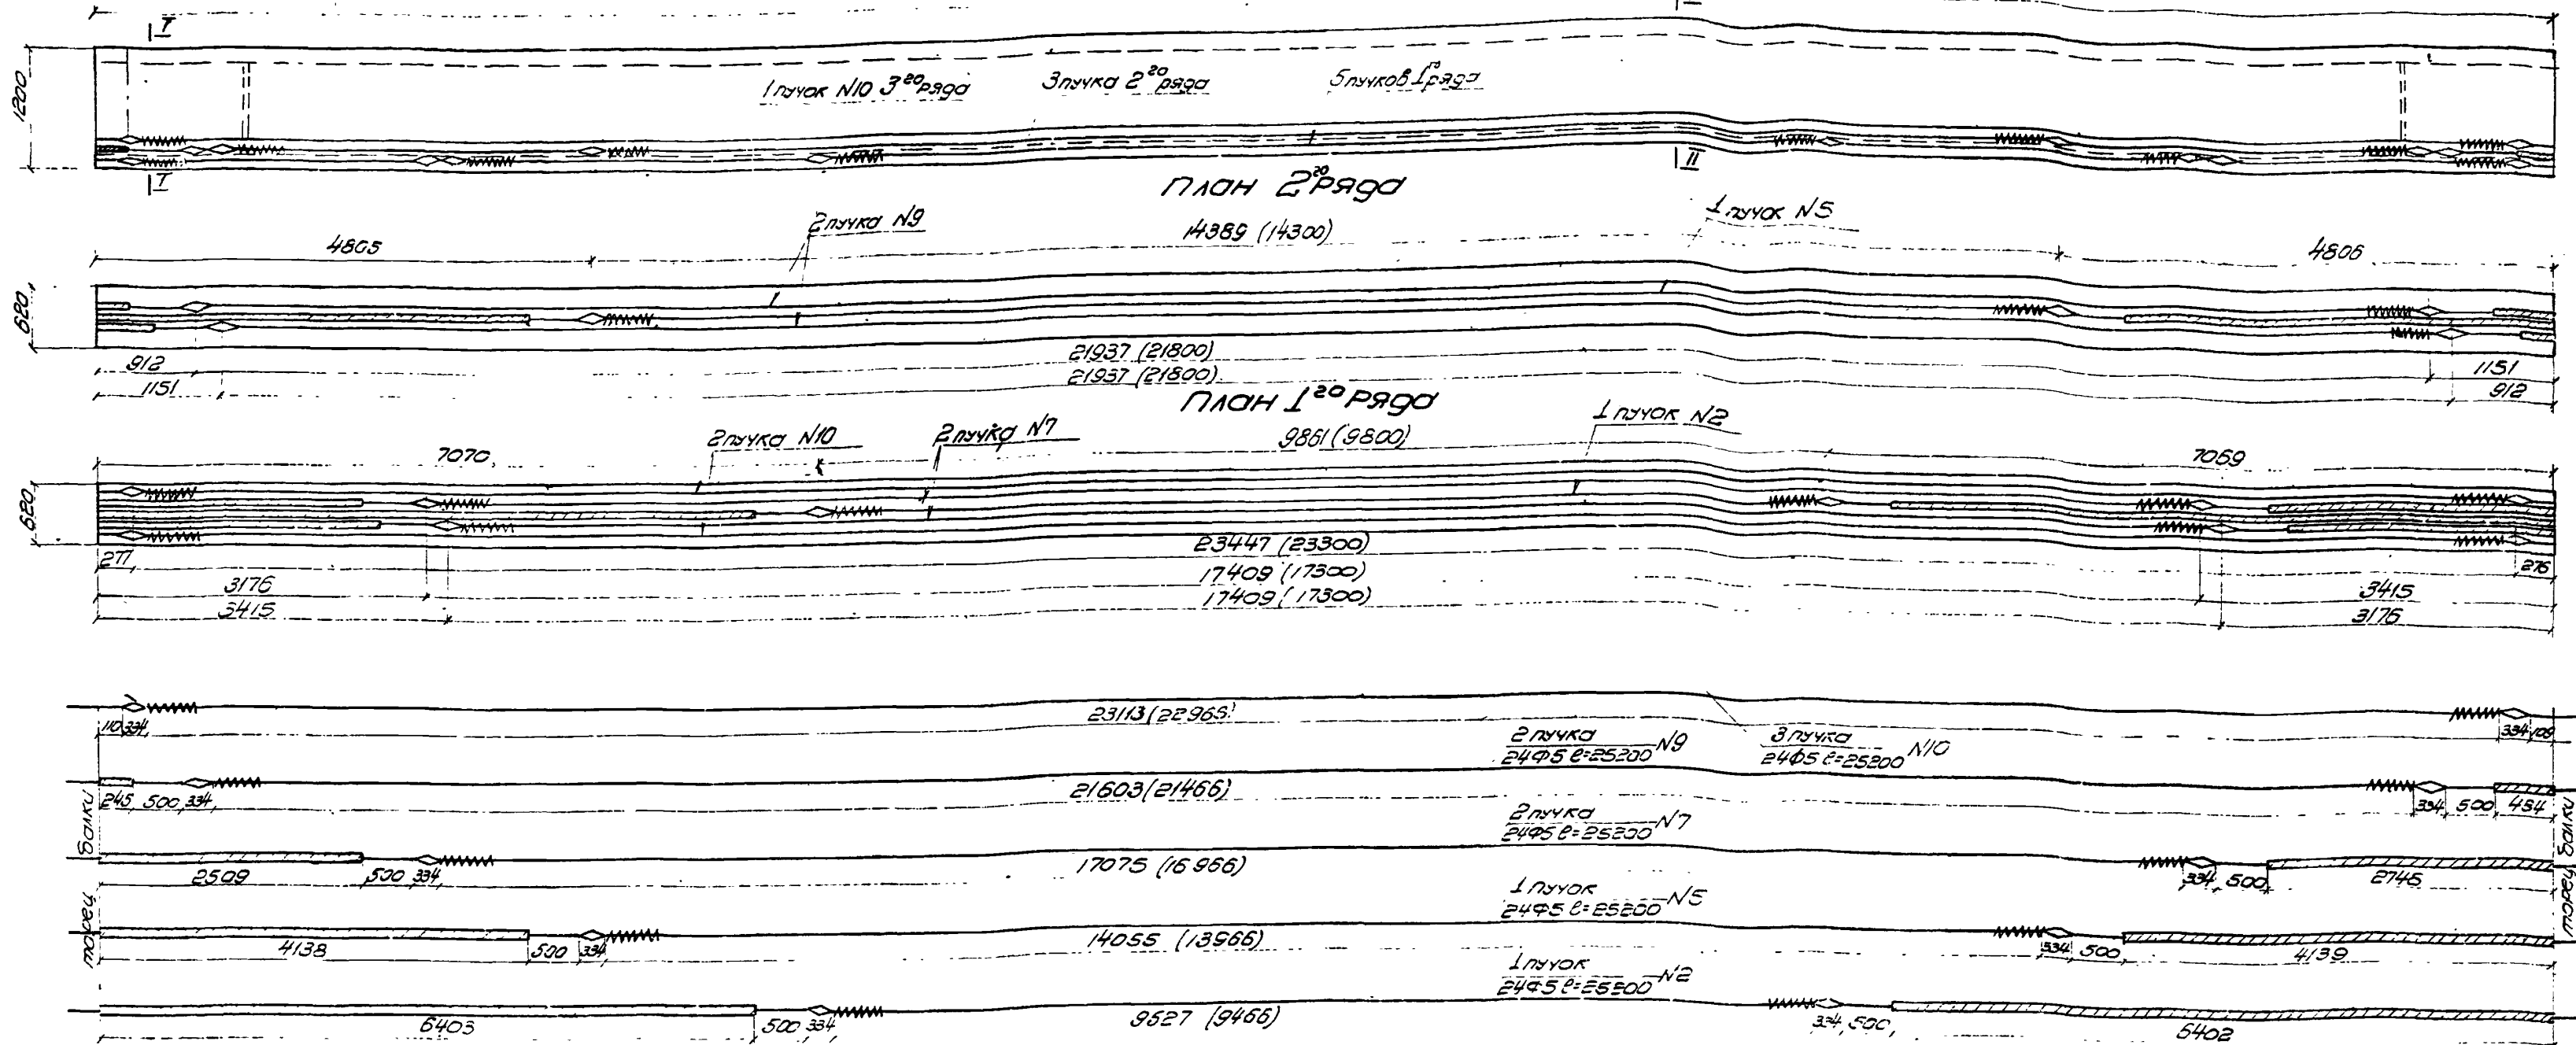 I
II
1200
1 пучок N10 3го ряда
3 пучка 2го ряда
5 пучков 1го ряда
I
II
План 2го ряда
2 пучка N9
1 пучок N5
4805
14389 (14300)
4806
620
21937 (21800)
912
1151
21937 (21800)
1151
912
План 1го ряда
2 пучка N10
2 пучка N7
1 пучок N2
7070
9861 (9800)
7069
620
23447 (23300)
277
276
17409 (17300)
3176
3415
17409 (17300)
3415
3176
110 334
23113 (22965)
334 109
2 пучка
24Ф5 ℓ=25200 N9
3 пучка
24Ф5 ℓ=25200 N10
245 500 334
21603 (21466)
334 500 484
2 пучка
24Ф5 ℓ=25200 N7
2509 500 334
17075 (16966)
334 500 2745
1 пучок
24Ф5 ℓ=25200 N5
4138 500 334
14055 (13966)
334 500 4139
1 пучок
24Ф5 ℓ=25200 N2
6403 500 334
9527 (9466)
334 500 6402
торец балки
торец балки